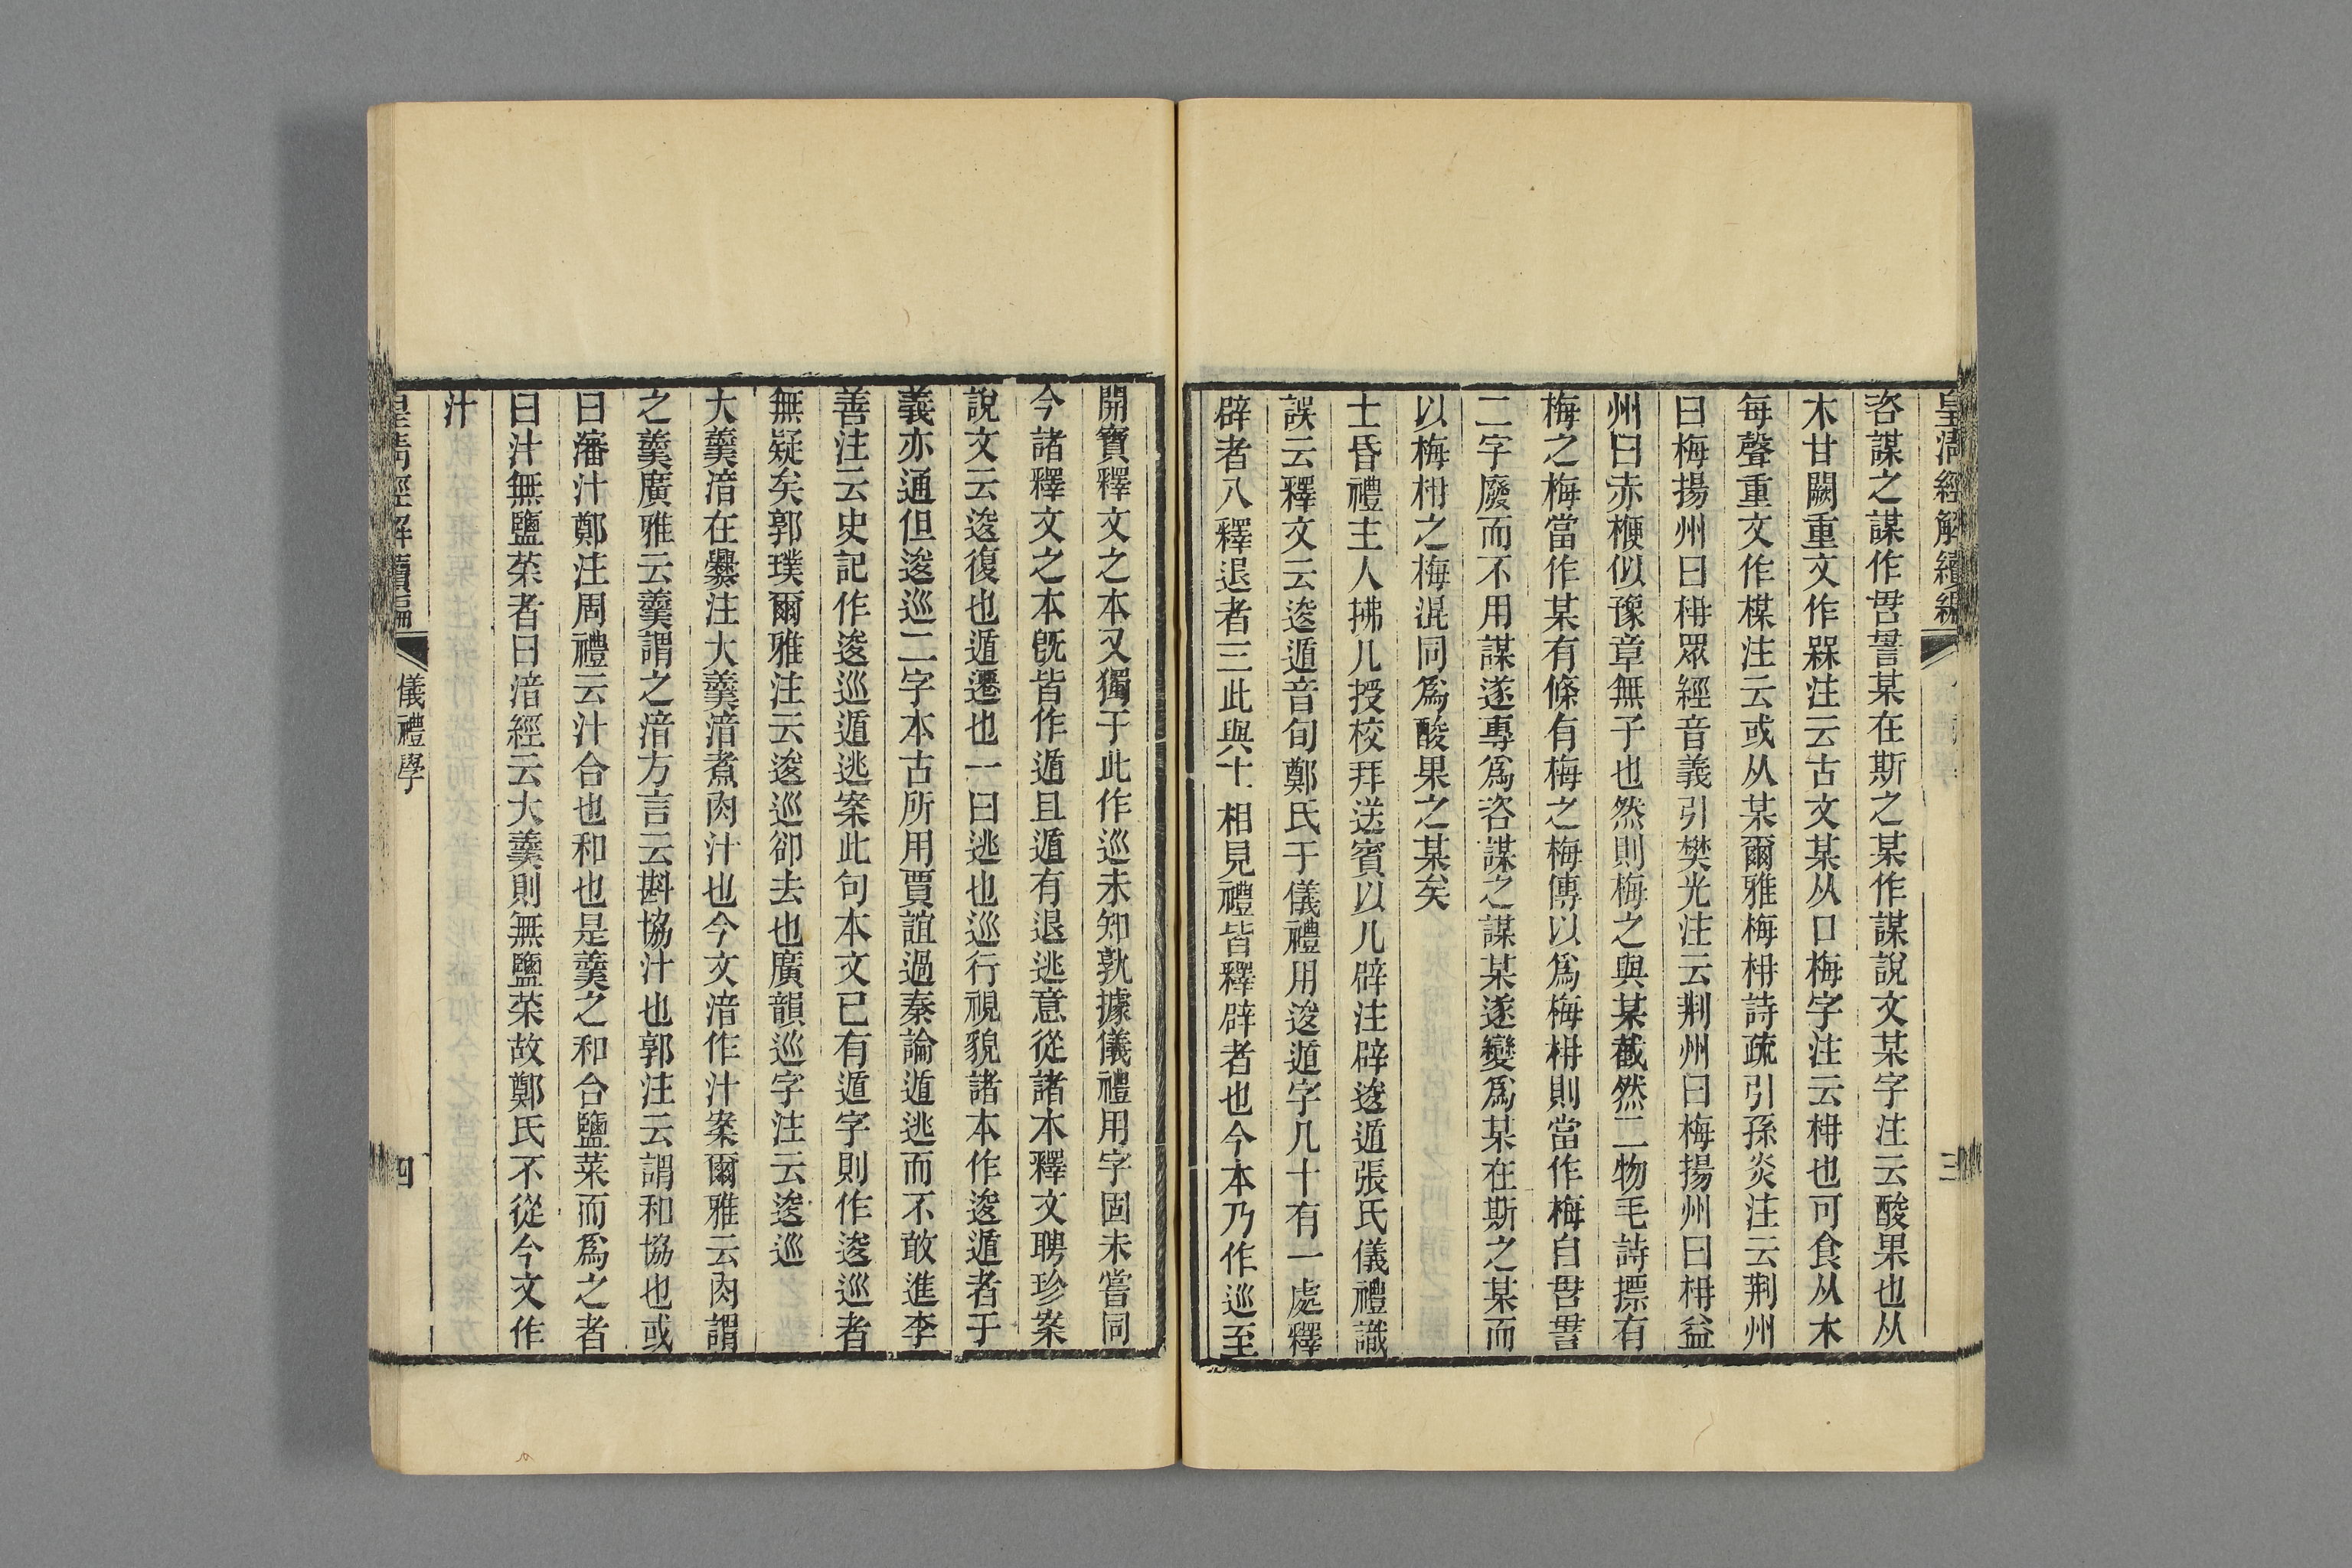 皇清經解續編
三
咨謀之謀作𠰔𧦥某在斯之某作謀說文某字注云酸果也从
木甘闕重文作槑注云古文某从口梅字注云枏也可食从木
每聲重文作楳注云或从某爾雅梅枏詩疏引孫炎注云荆州
曰梅揚州曰枏眾經音義引樊光注云荆州曰梅揚州曰枏益
州曰赤楩似豫章無子也然則梅之與某截然二物毛詩摽有
梅之梅當作某有條有梅之梅傳以爲梅枏則當作梅自𠰔𧦥
二字廢而不用謀遂專爲咨謀之謀某遂變爲某在斯之某而
以梅枏之梅混同爲酸果之某矣
士昏禮主人拂几授校拜送賓以几辟注辟逡遁張氏儀禮識
誤云釋文云逡遁音旬鄭氏于儀禮用逡遁字凡十有一處釋
辟者八釋退者三此與士相見禮皆釋辟者也今本乃作巡至
開寶釋文之本又獨于此作巡未知孰據儀禮用字固未嘗同
今諸釋文之本既皆作遁且遁有退逃意從諸本釋文聘珍案
說文云逡復也遁遷也一曰逃也巡行視貌諸本作逡遁者于
義亦通但逡巡二字本古所用賈誼過秦論遁逃而不敢進李
善注云史記作逡巡遁逃案此句本文已有遁字則作逡巡者
無疑矣郭璞爾雅注云逡巡卻去也廣韻巡字注云逡巡
大羹湆在爨注大羹湆煮肉汁也今文湆作汁案爾雅云肉謂
之羹廣雅云羹謂之湆方言云斟協汁也郭注云謂和協也或
曰瀋汁鄭注周禮云汁合也和也是羹之和合鹽菜而爲之者
曰汁無鹽菜者曰湆經云大羹則無鹽菜故鄭氏不從今文作
汁
皇清經解續編
儀禮學
四